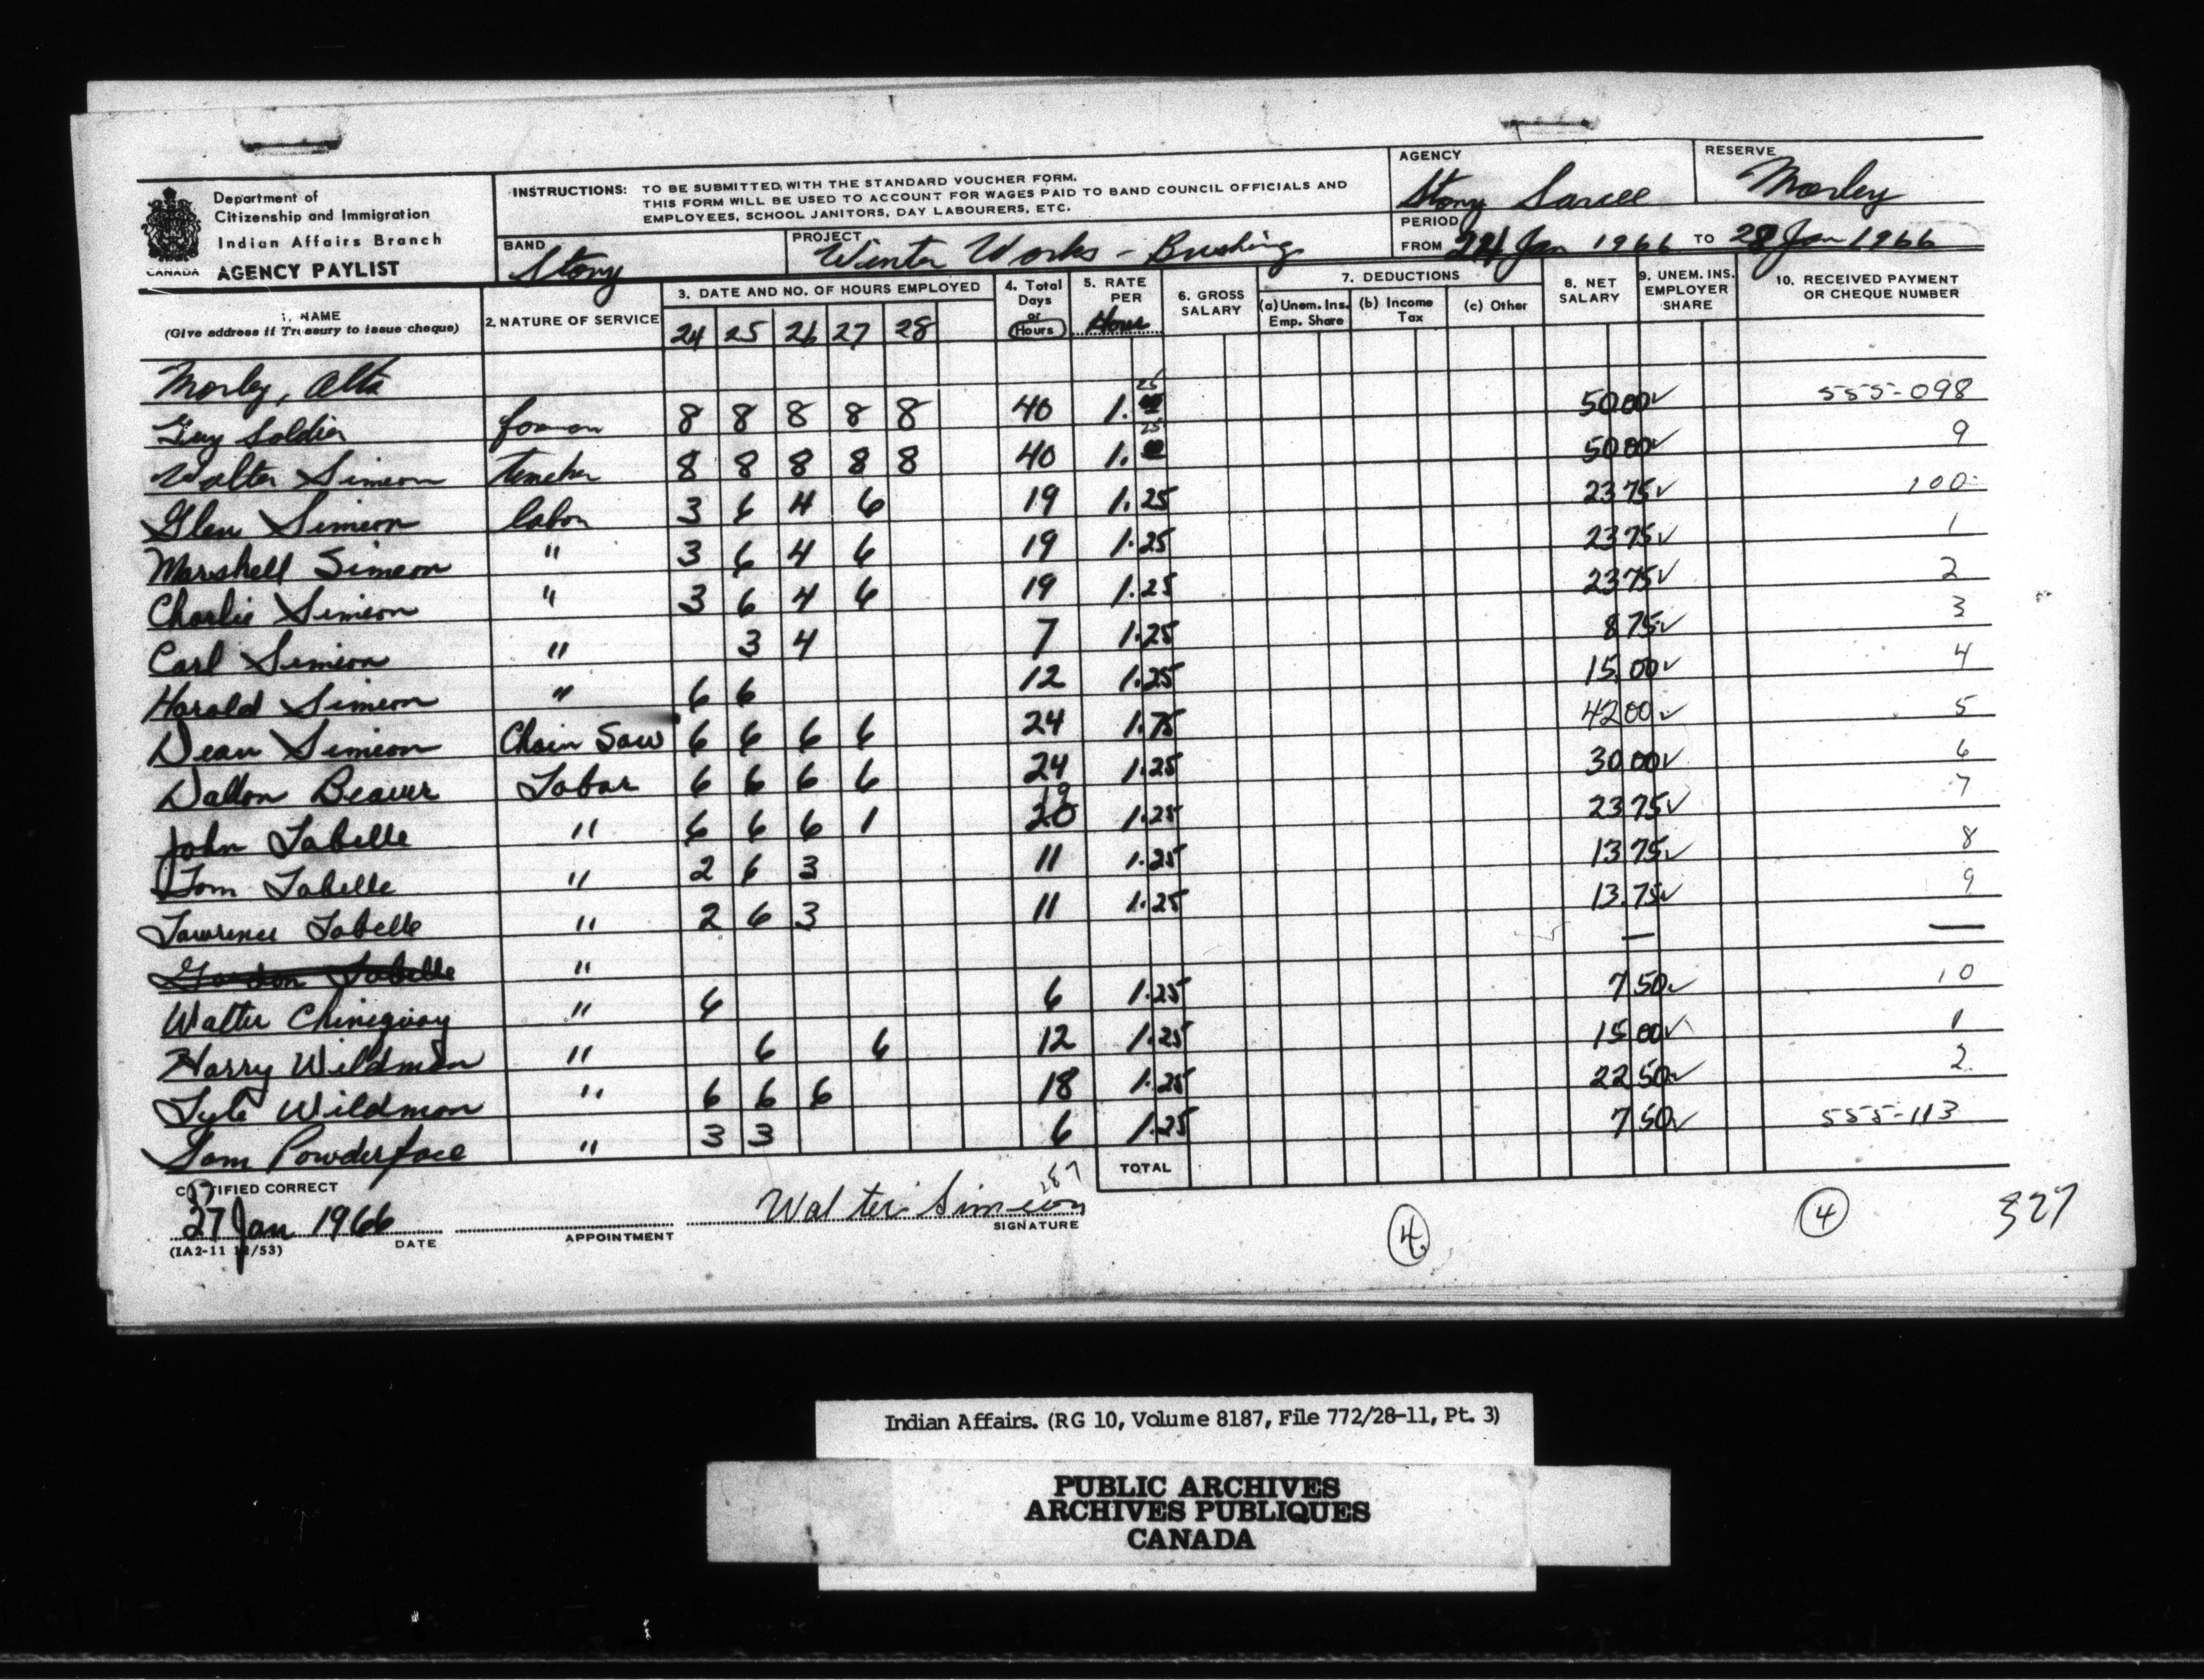 Department of
Citizenship and Immigration
Indian Affairs Branch
CANADA AGENCY PAYLIST
INSTRUCTIONS: TO BE SUBMITTED WITH THE STANDARD VOUCHER FORM.
THIS FORM WILL BE USED TO ACCOUNT FOR WAGES PAID TO BAND COUNCIL OFFICIALS AND
EMPLOYEES, SCHOOL JANITORS, DAY LABOURERS, ETC.
AGENCY Stony Sarcee
RESERVE Morley
BAND Stony
PROJECT Winter Works - Brushing
PERIOD
FROM 24 Jan 1966 TO 28 Jan 1966
1. NAME
(Give address if Treasury to issue cheque)
2. NATURE OF SERVICE
3. DATE AND NO. OF HOURS EMPLOYED
24 25 26 27 28
4. Total
Days
or
Hours
5. RATE
PER
Hour
6. GROSS
SALARY
7. DEDUCTIONS
(a) Unem. Ins.
Emp. Share
(b) Income
Tax
(c) Other
8. NET
SALARY
9. UNEM. INS.
EMPLOYER
SHARE
10. RECEIVED PAYMENT
OR CHEQUE NUMBER
Morley, Alta
Guy Soldier forman 8 8 8 8 8 40 1.25 50 00✓ 555-098
Walter Simeon 8 8 8 8 8 40 1.25 50 00✓ 9
Glen Simeon labor 3 6 4 6 19 1.25 23 75✓ 100
Marshell Simeon " 3 6 4 6 19 1.25 23 75✓ 1
Charlie Simeon " 3 6 4 6 19 1.25 23 75✓ 2
Carl Simeon " 3 4 7 1.25 8 75✓ 3
Harold Simeon " 6 6 12 1.25 15.00✓ 4
Dean Simeon Chain Saw 6 6 6 6 24 1.75 42 00✓ 5
Dalton Beaver Labor 6 6 6 6 24 1.25 30 00✓ 6
John Labelle " 6 6 6 1 20 19 1.25 23 75✓ 7
Tom Labelle " 2 6 3 11 1.25 13 75✓ 8
Lawrence Labelle " 2 6 3 11 1.25 13.75✓ 9
Gordon Labelle " — —
Walter Chiniquay " 6 6 1.25 7 50✓ 10
Harry Wildman " 6 6 12 1.25 15 00✓ 1
Lyle Wildman " 6 6 6 18 1.25 22 50✓ 2
Sam Powderface " 3 3 6 1.25 7 50✓ 555-113
TOTAL
287
CERTIFIED CORRECT
27 Jan 1966
DATE
APPOINTMENT
Walter Simeon
SIGNATURE
(IA2-11 12/53)
4
4
327
Indian Affairs. (RG 10, Volume 8187, File 772/28-11, Pt. 3)
PUBLIC ARCHIVES
ARCHIVES PUBLIQUES
CANADA